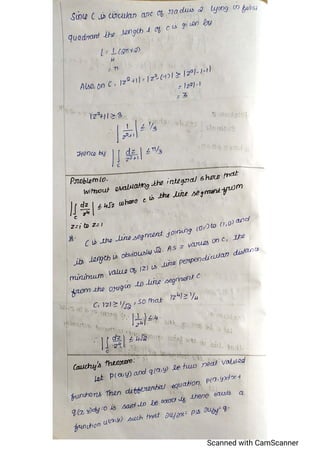 Since C is circular arc of radius 2 lying on first
quadrant the length l of c is given by
l = 1/4 (2π×2)
= π
Also, on C, |z²+1| = |z²-(-1)| ≥ |z²|-|-1|
= |z²|-1
= 3
|z²+1| ≥ 3
∴ |1/z²+1| ≤ 1/3
Hence by |∫c dz/z²+1| ≤ π/3
Problem 10.
without evaluating the integral show that
|∫c dz/z⁴| ≤ 4√2 where c is the line segment from
z=i to z=1
C is the line segment joining (0,1) to (1,0) and
its length is obviously √2. As z varies on C, the
minimum value of |z| is perpendicular distance
from the origin to line segment C.
C, |z| ≥ 1/√2, so that |z⁴| ≥ 1/4
∴ |1/z⁴| ≤ 4
∴ |∫c dz/z⁴| ≤ 4√2
Cauchy's Theorem:
Let p(x,y) and q(x,y) be two real valued
functions Then differential equation, p(x,y)dx +
q(x,y)dy=0 is said to be exact if there exists a
function u(x,y) such that ∂u/∂x = p & ∂u/∂y = q.
Scanned with CamScanner